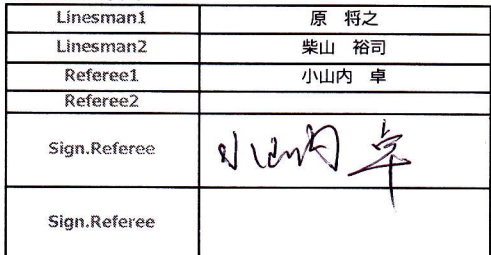 Linesman1 原 将之
Linesman2 柴山 裕司
Referee1 小山内 卓
Referee2
Sign.Referee 小山内 卓
Sign.Referee